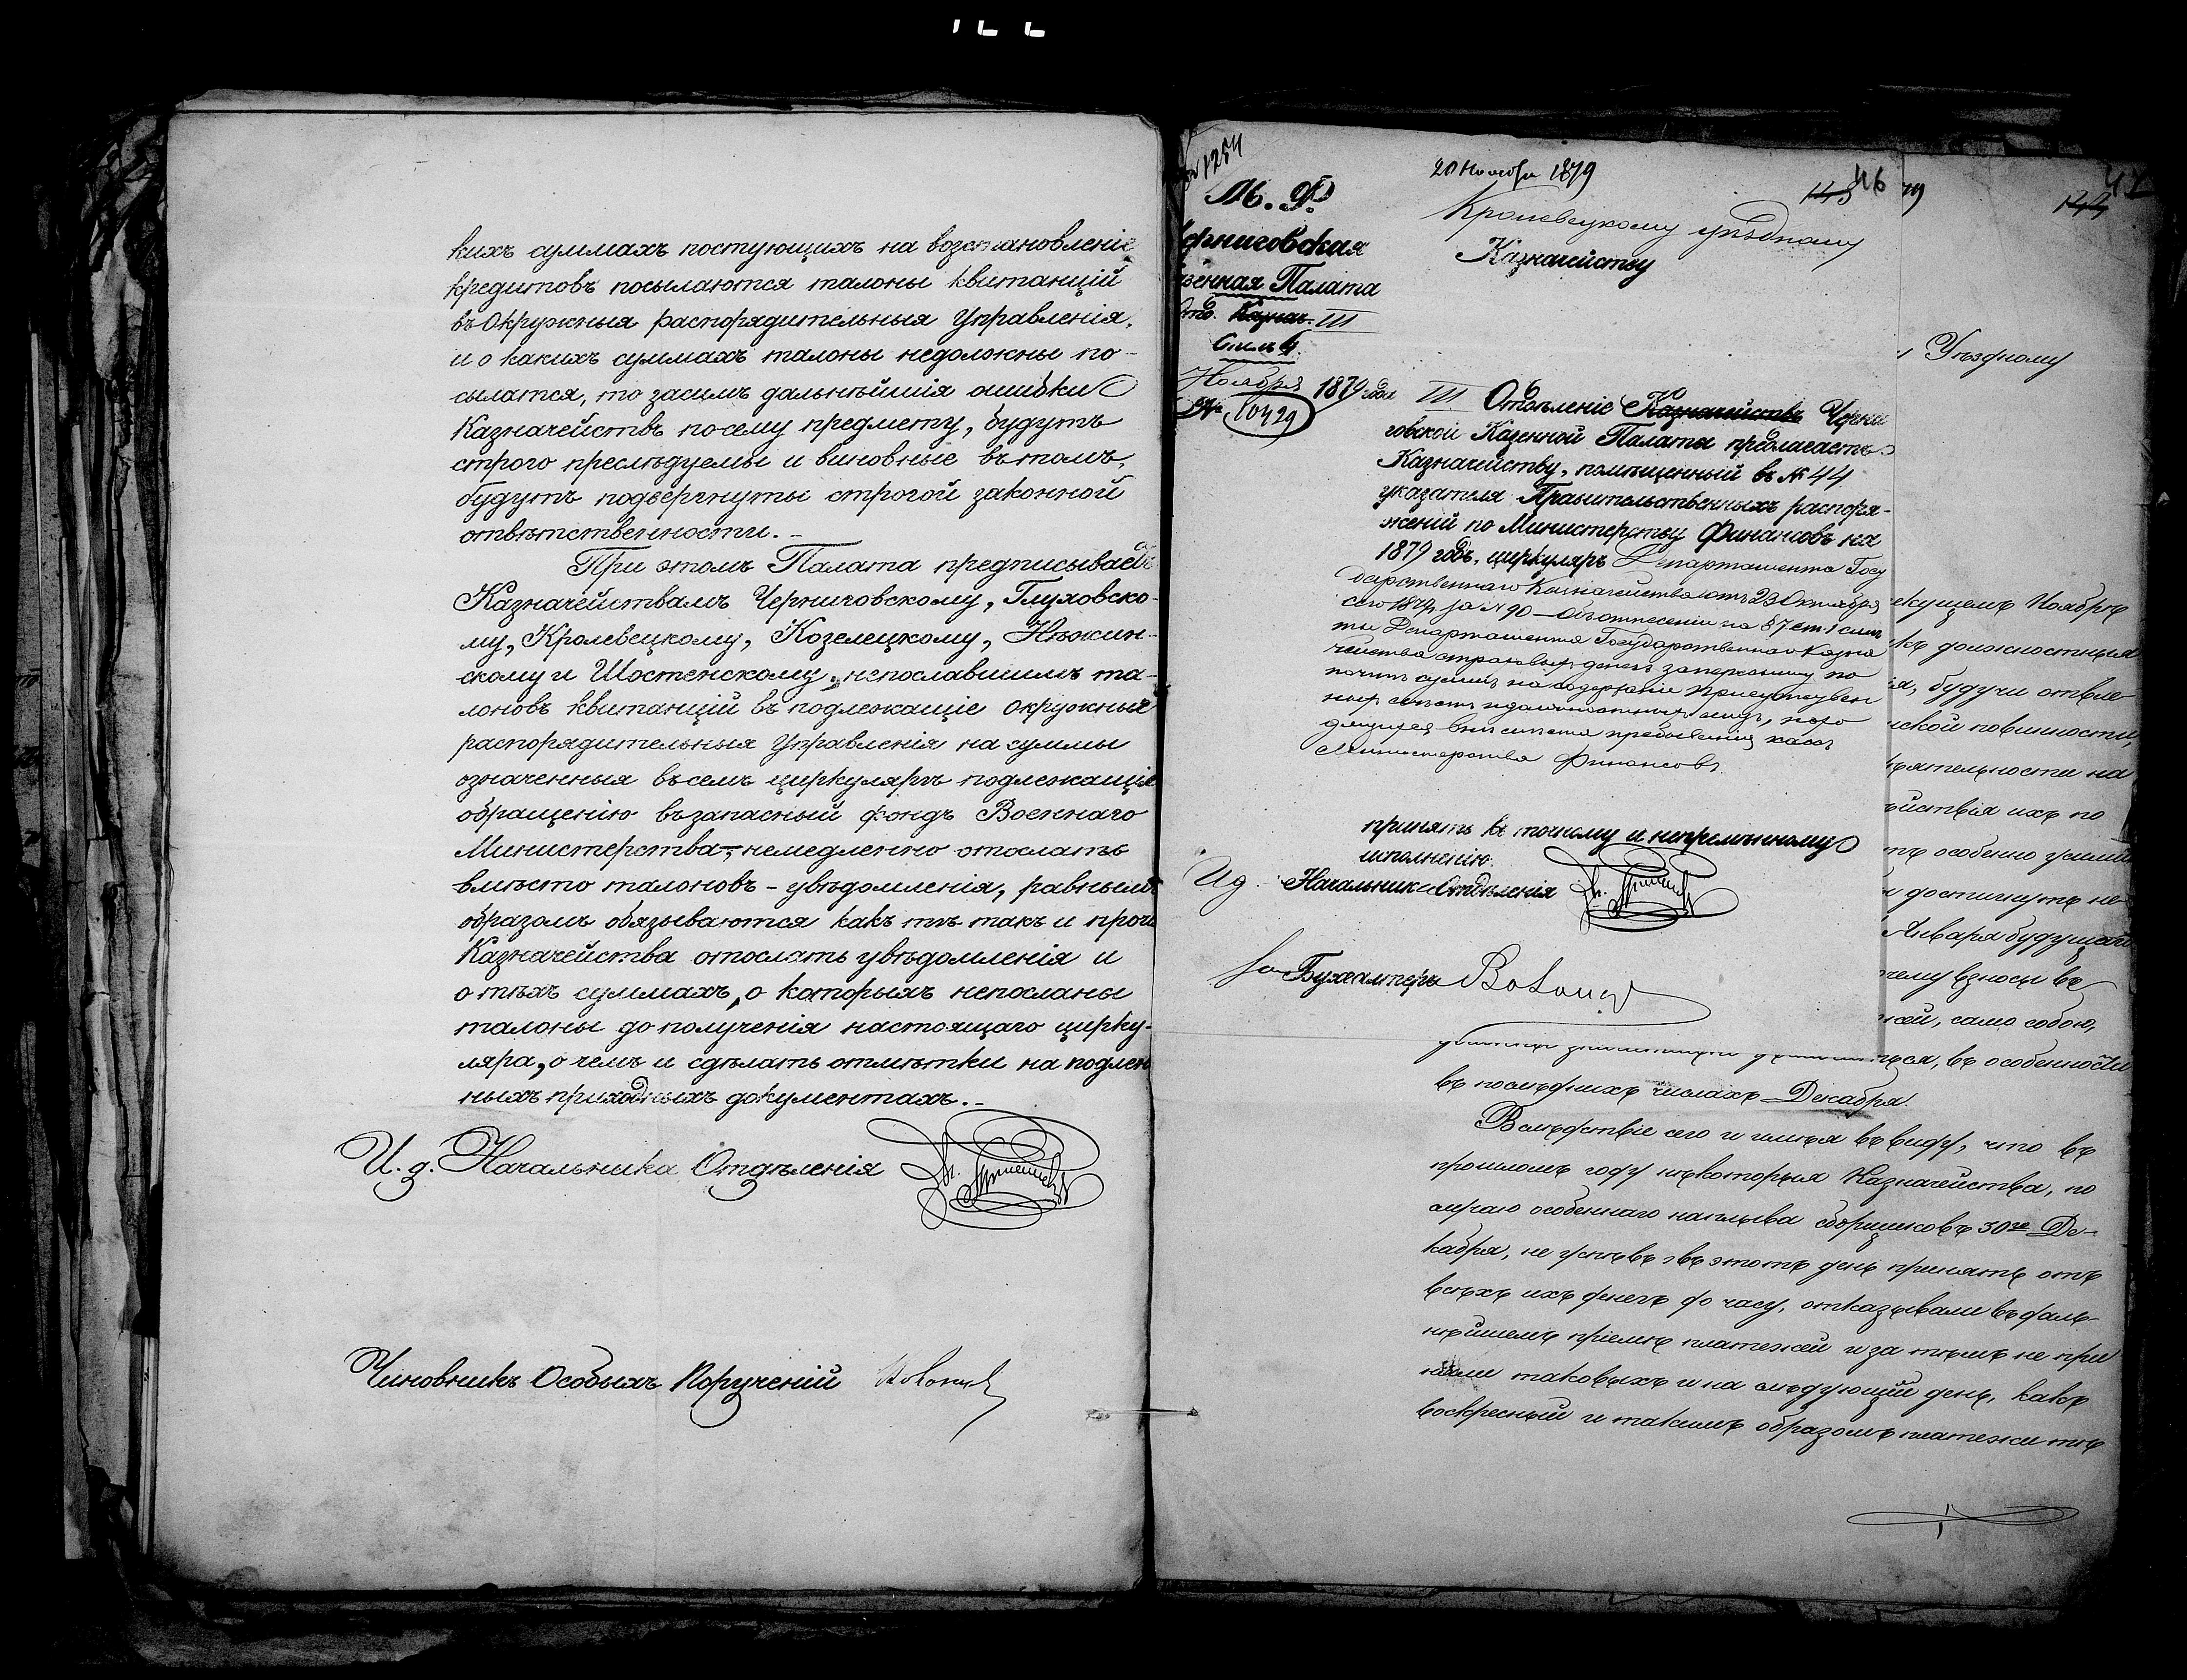 кихъ суммахъ поступющихъ на возстановленіе
кредитовъ посылаются талоны квитанцій
въ Окружныя распорядительныя Управленія,
и о какихъ суммахъ талоны недолжны по-
сылатся, то засимъ дальнѣйшія ошибки
Казначействъ посему предмету, будутъ
строго преслѣдуемы и виновные въ томъ,
будутъ подвергнуты строгой законной
отвѣтственности.-
При этомъ Палата предписываетъ
Казначействамъ Черниговскому, Глуховско-
му, Кролевецкому, Козелецкому, Нѣжин-
скому и Шостенскому, непославшимъ та-
лоновъ квитанцій въ подлежащіе окружные
распорядительныя Управленія на суммы
означенныя въ семъ циркулярѣ подлежащіе
обращенію въ запасный фондъ Военнаго
Министерства, немедленно отослать
вмѣсто талоновъ - увѣдомленія, равнымъ
образомъ обязываются какъ тѣ такъ и проч
Казначейства отослать увѣдомленія и
о тѣхъ суммахъ, о которыхъ непосланы
талоны до полученія настоящаго цирку-
ляра, о чемъ и сдѣлать отмѣтки на подлен
ныхъ приходныхъ документахъ.-
И. д. Начальника Отдѣленія
Чиновникъ Особыхъ Порученій
1254
20 Ноября 1879
М. Ф.
Черниговская
зенная Палата
Отд. Казнач. III
Столъ 4
Ноября 1879 года
№ 10429
143 46
Кролевецкому уѣздному
Казначейству
III Отдѣленіе Казначействъ Черни
говской Казенной Палаты предлагаетъ
Казначейству, помѣщенный въ № 44
указателя Правительственныхъ распоря-
женій по Министерству Финансовъ на
1879 годъ, циркуляръ Департамента Госу
дарственнаго Казначейства отъ 23 Октября
сего 1879 за № 90 - Объ отнесеніи на § 7 ст. 1 смѣ
ты Департамента Государственнаго Казна
чейства
Министерства Финансовъ.
принять къ точному и непремѣнному
исполненію.
Ид. Начальника Отдѣленія
за Бухгалтера
79
144 47
Уѣздному
екущемъ Ноябрѣ
къ должностныя
я, будучи отвле
ской повинности,
ѣятельности на
ействія ихъ по
тъ особенно усили
достигнуть не
Января будущаго
чему взносы въ
жей, само собою,
ся, въ особенности
въ послѣднихъ числахъ Декабря.
Вслѣдствіе сего и имѣя въ виду, что въ
прошломъ году нѣкоторыя Казначейства, по
случаю особеннаго наплыва сборщиковъ 30го Де-
кабря, не успѣвъ въ этотъ день принять отъ
всѣхъ ихъ денегъ до часу, отказывали въ даль-
нѣйшемъ пріемѣ платежей и за тѣмъ не при
няли таковыхъ и на слѣдующій день, какъ
воскресный и такимъ образомъ платежи тѣ